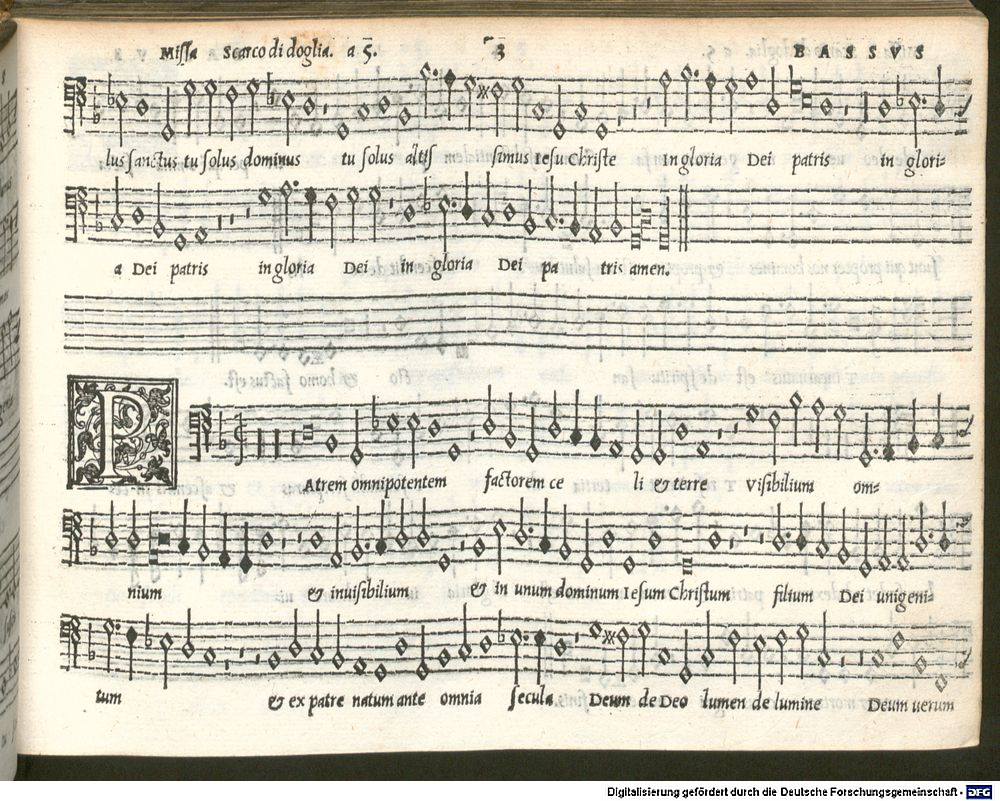 Missa Scarco di doglia. a 5. 3 BASSVS
lus sanctus tu solus dominus tu solus altis simus Iesu Christe In gloria Dei patris in glori=
a Dei patris in gloria Dei in gloria Dei pa tris amen.
P
Atrem omnipotentem factorem ce li & terre Visibilium om=
nium & inuisibilium & in unum dominum Iesum Christum filium Dei unigeni=
tum & ex patre natum ante omnia secula Deum de Deo lumen de lumine Deum uerum
Digitalisierung gefördert durch die Deutsche Forschungsgemeinschaft - DFG